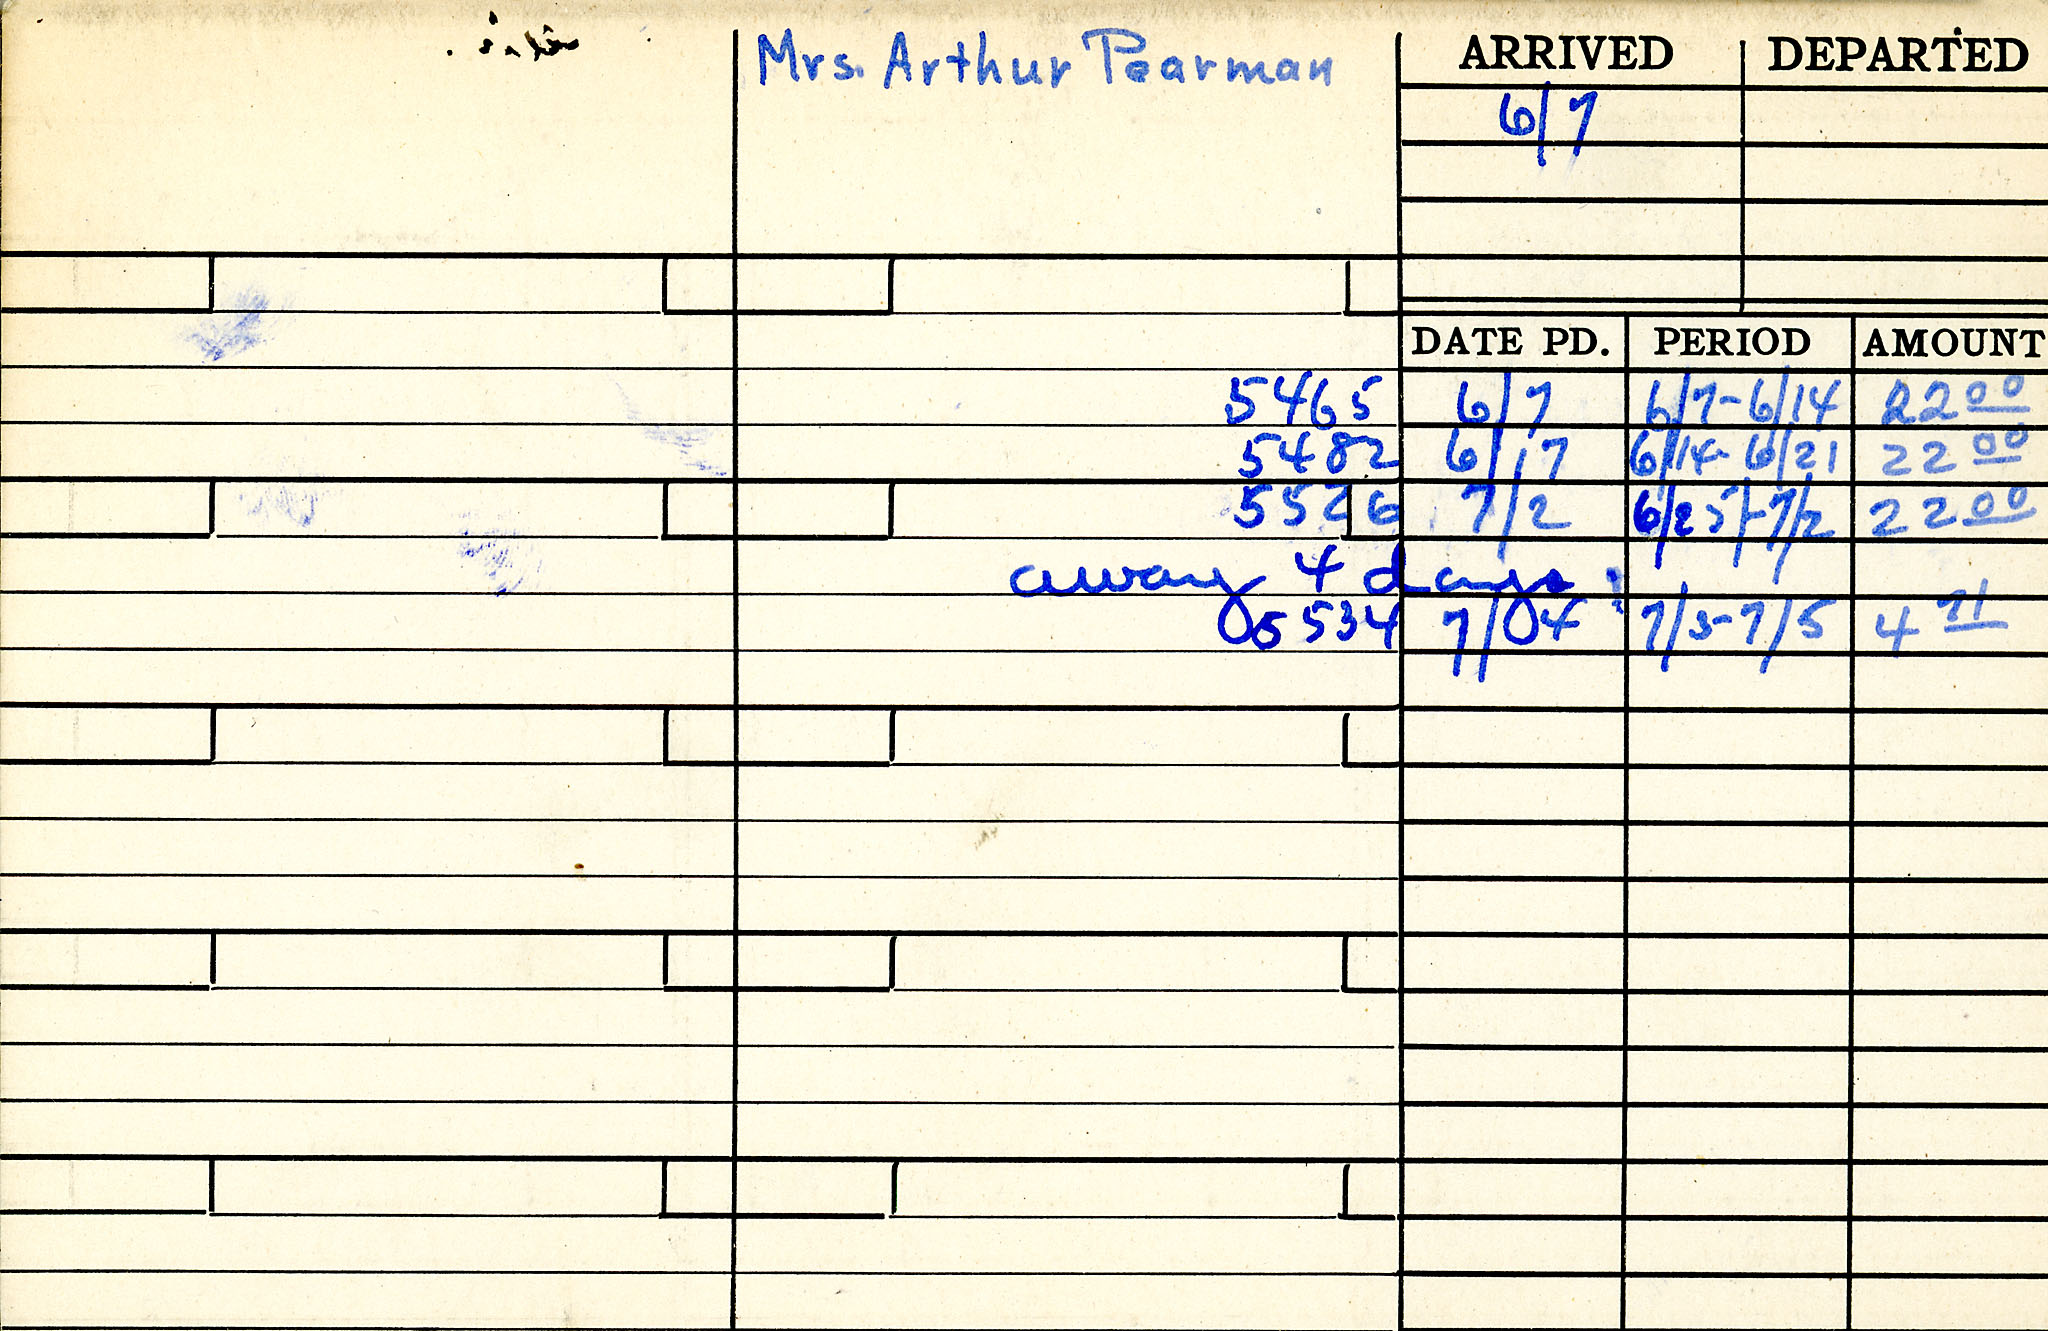 Mrs. Arthur Pearman
ARRIVED DEPARTED
6/7
DATE PD. PERIOD AMOUNT
5465 6/7 6/7-6/14 22 00
5482 6/17 6/14-6/21 22 00
5526 7/2 6/25-7/2 22 00
away 4 days
5534 7/4 7/3-7/5 4 71